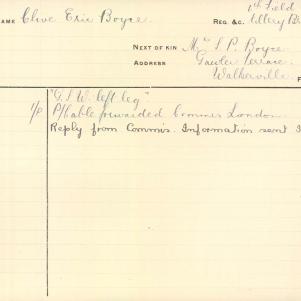 th Field
NAME Clive Eric Boyce. REG. &C. tillery B
NEXT OF KIN Mrs S. P. Boyce
ADDRESS Gawler Terrace.
Walkerville.
"G.S.W. left leg"
1/8 P/cable forwarded Commis London
Reply from Commis. Information sent